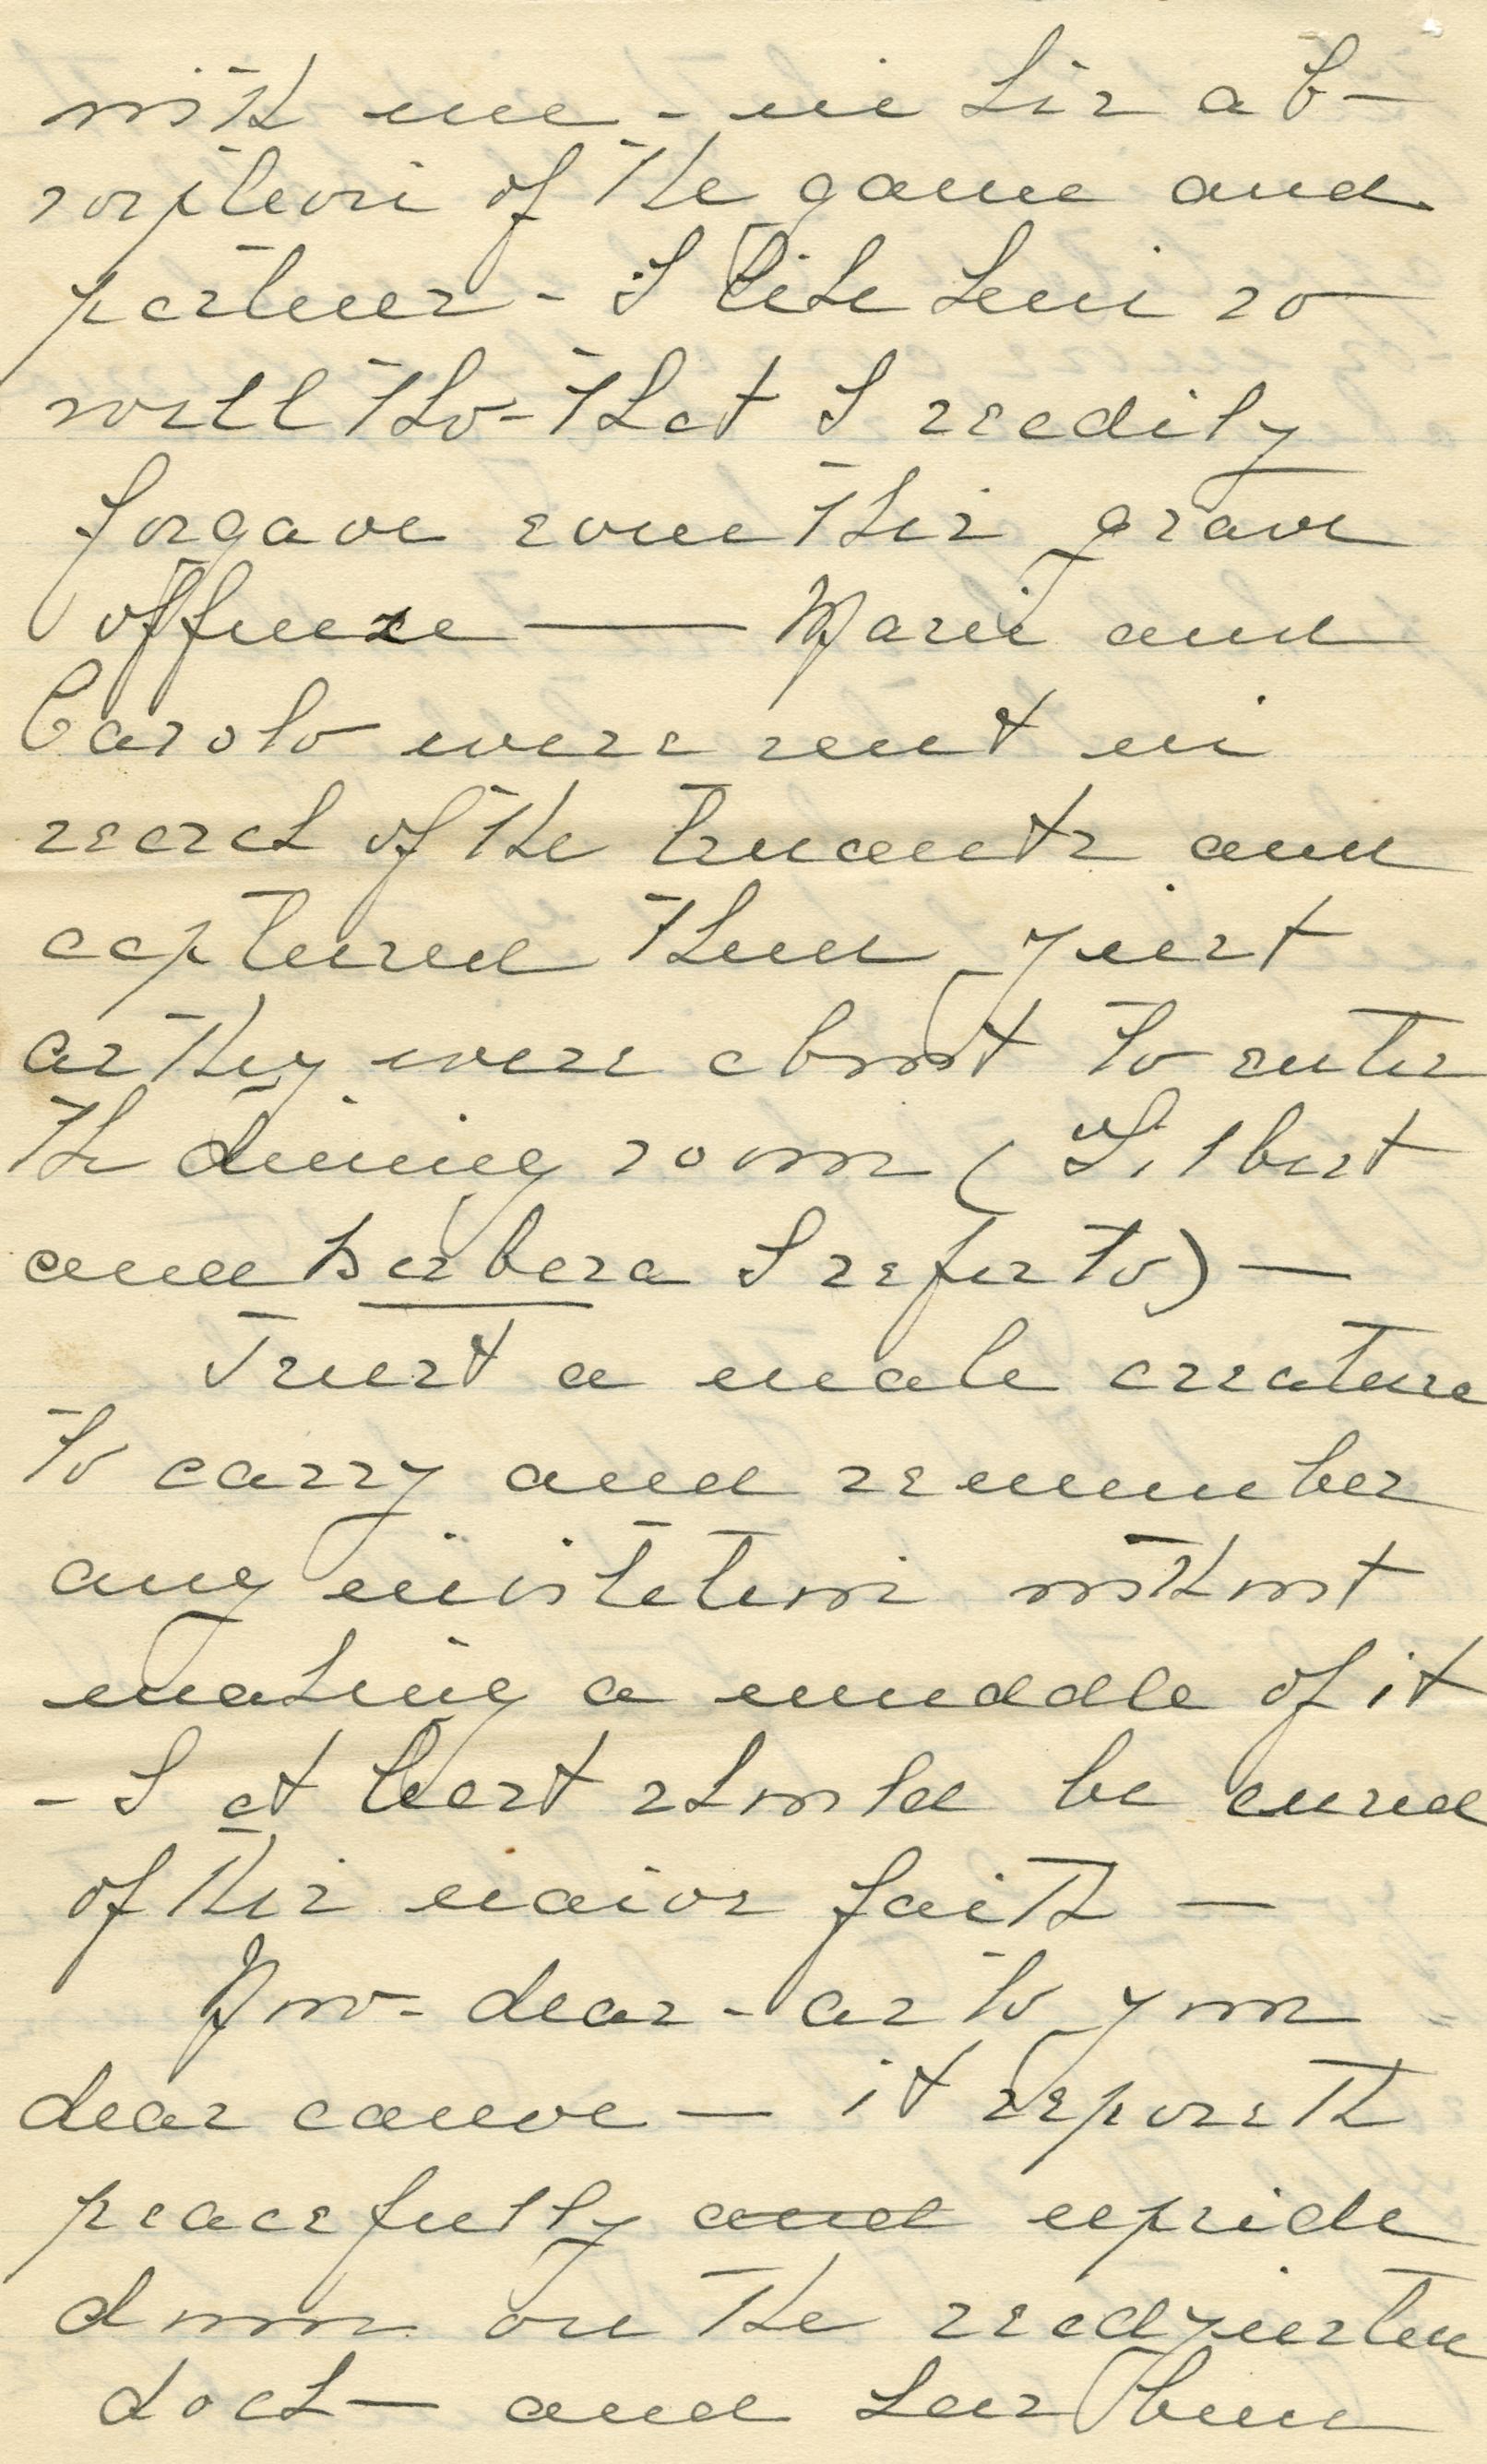 with me - in his ab-
sorption of the game and
partner - I like him so
well tho - that I readily
forgave even this grave
offense — Marie and
Carolo were sent in
search of the truants and
captured them just
as they were about to enter
the dining room (Gilbert
and Barbara I refer to) —
Trust a male creature
to carry and remember
any invitation without
making a muddle of it
- I at least should be cured
of this naive faith —
Now - dear - as to your
dear canoe — it reposeth
peacefully and upside
down on the readjusted
dock — and has been